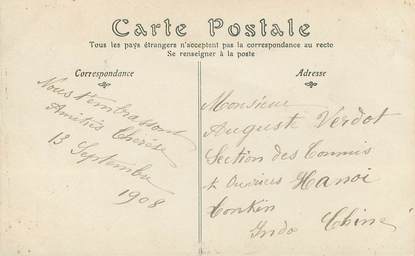 Carte Postale
Tous les pays étrangers n'acceptent pas la correspondance au recto
Se renseigner à la poste
Correspondance
Nous t'embrassons
Amitiés Thérèse
13 Septembre
1908
Adresse
Monsieur
August Verdot
Section des Commis
et Ouvriers Hanoi
Tonkin
Indo Chine